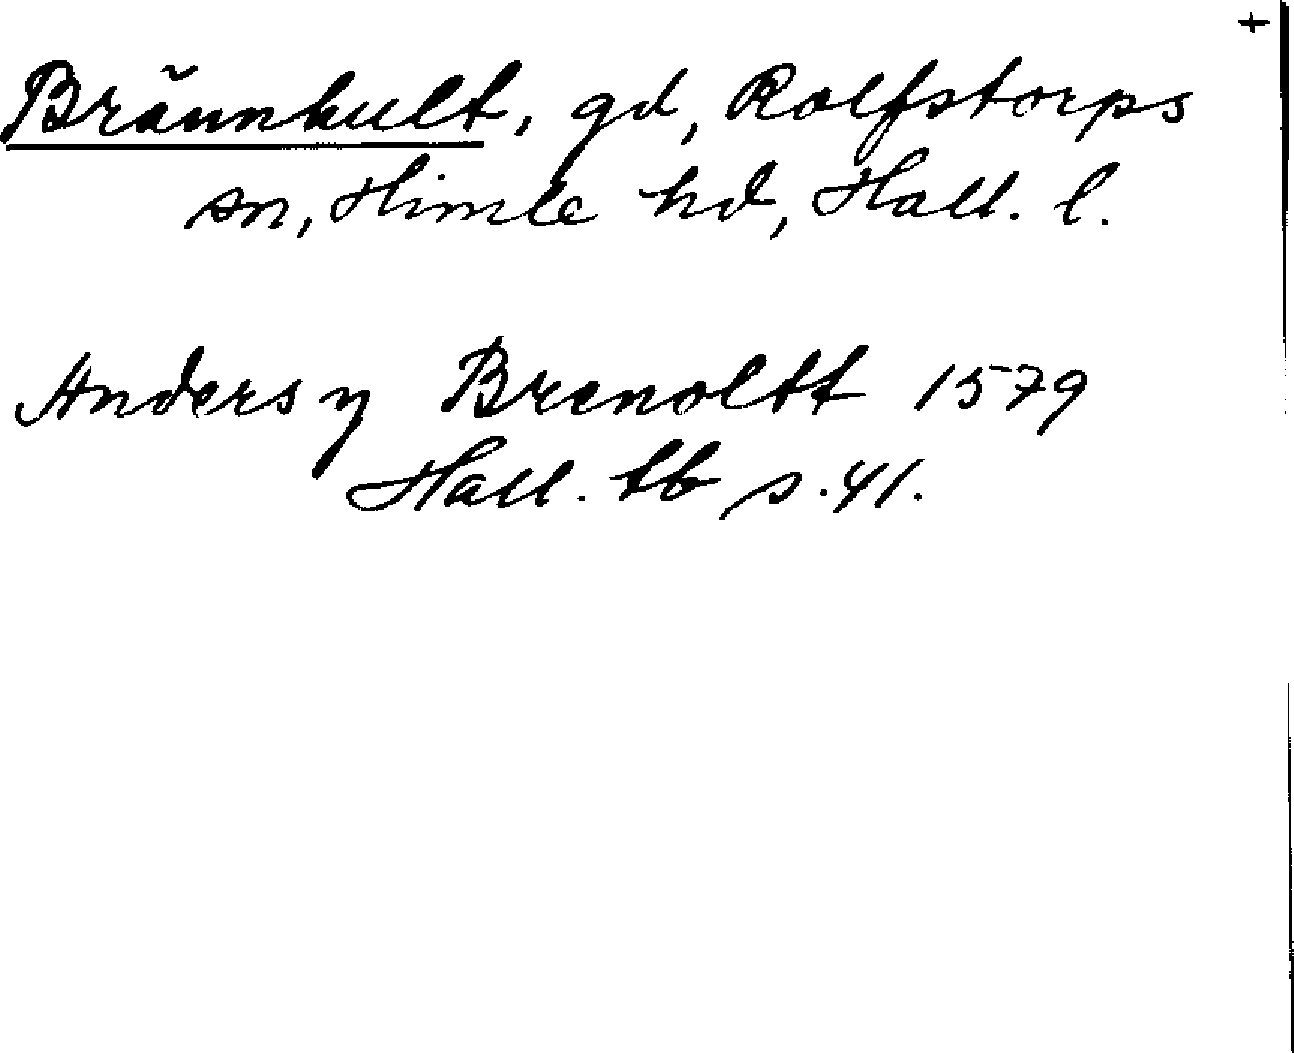 +
Brännhult, gd, Rolfstorps
sn, Himle hd, Hall. l.
Anders y Brenoltt 1579
Hall. tb s. 41.